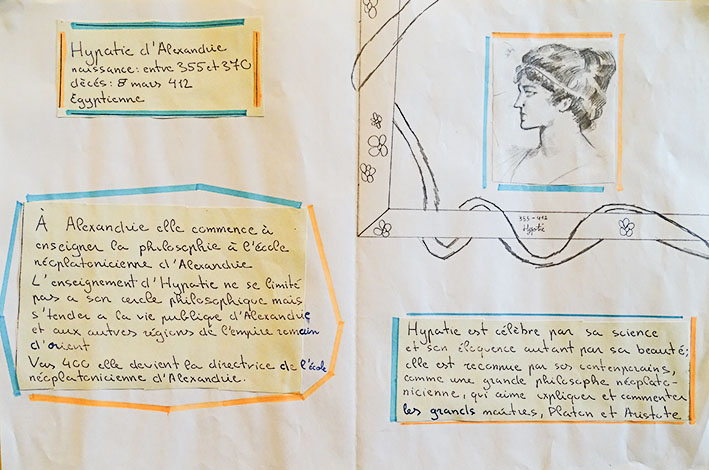 Hypatie d'Alexandrie
naissance: entre 355 et 370
décés: 8 mars 412
Egyptienne
À Alexandrie elle commence à
enseigner la philosophie à l'école
néoplatonicienne d'Alexandrie
L'enseignement d'Hypatie ne se limité
pas a son cercle philosophique mais
s'tender a la vie publique d'Alexandrie
et aux autres régions de l'empire romain
d'orient
Vas 400 elle devient la directrice de l'école
néoplatonicienne d'Alexandrie.
355-412
Hypatie
Hypatie est célèbre par sa science
et son éloquence autant par sa beauté;
elle est reconnue par ses contenporains,
comme une grande philosophe néoplato-
nicienne, qui aime expliquer et commenter
les grands maîtres, Platon et Aristote